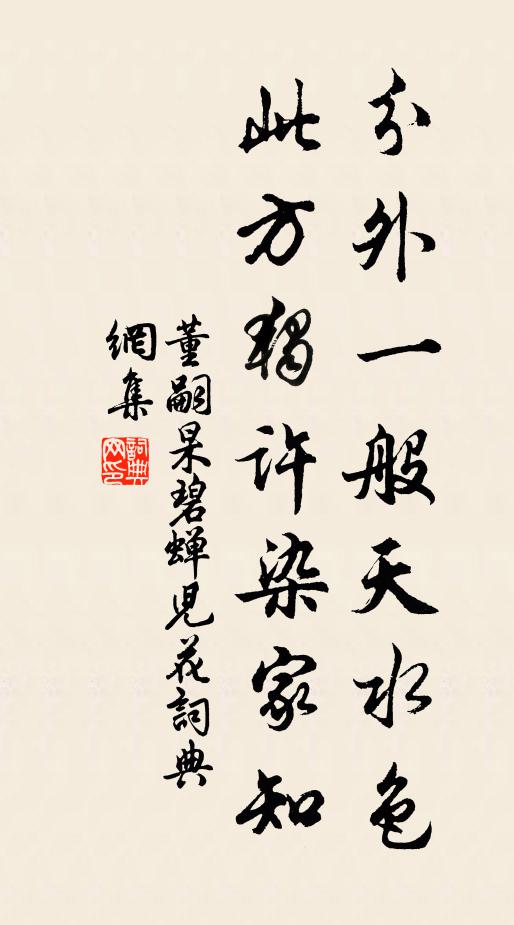 分外一般天水色
此方獨許染家知
董嗣杲碧蟬兒花詞典
網集
詞典網印